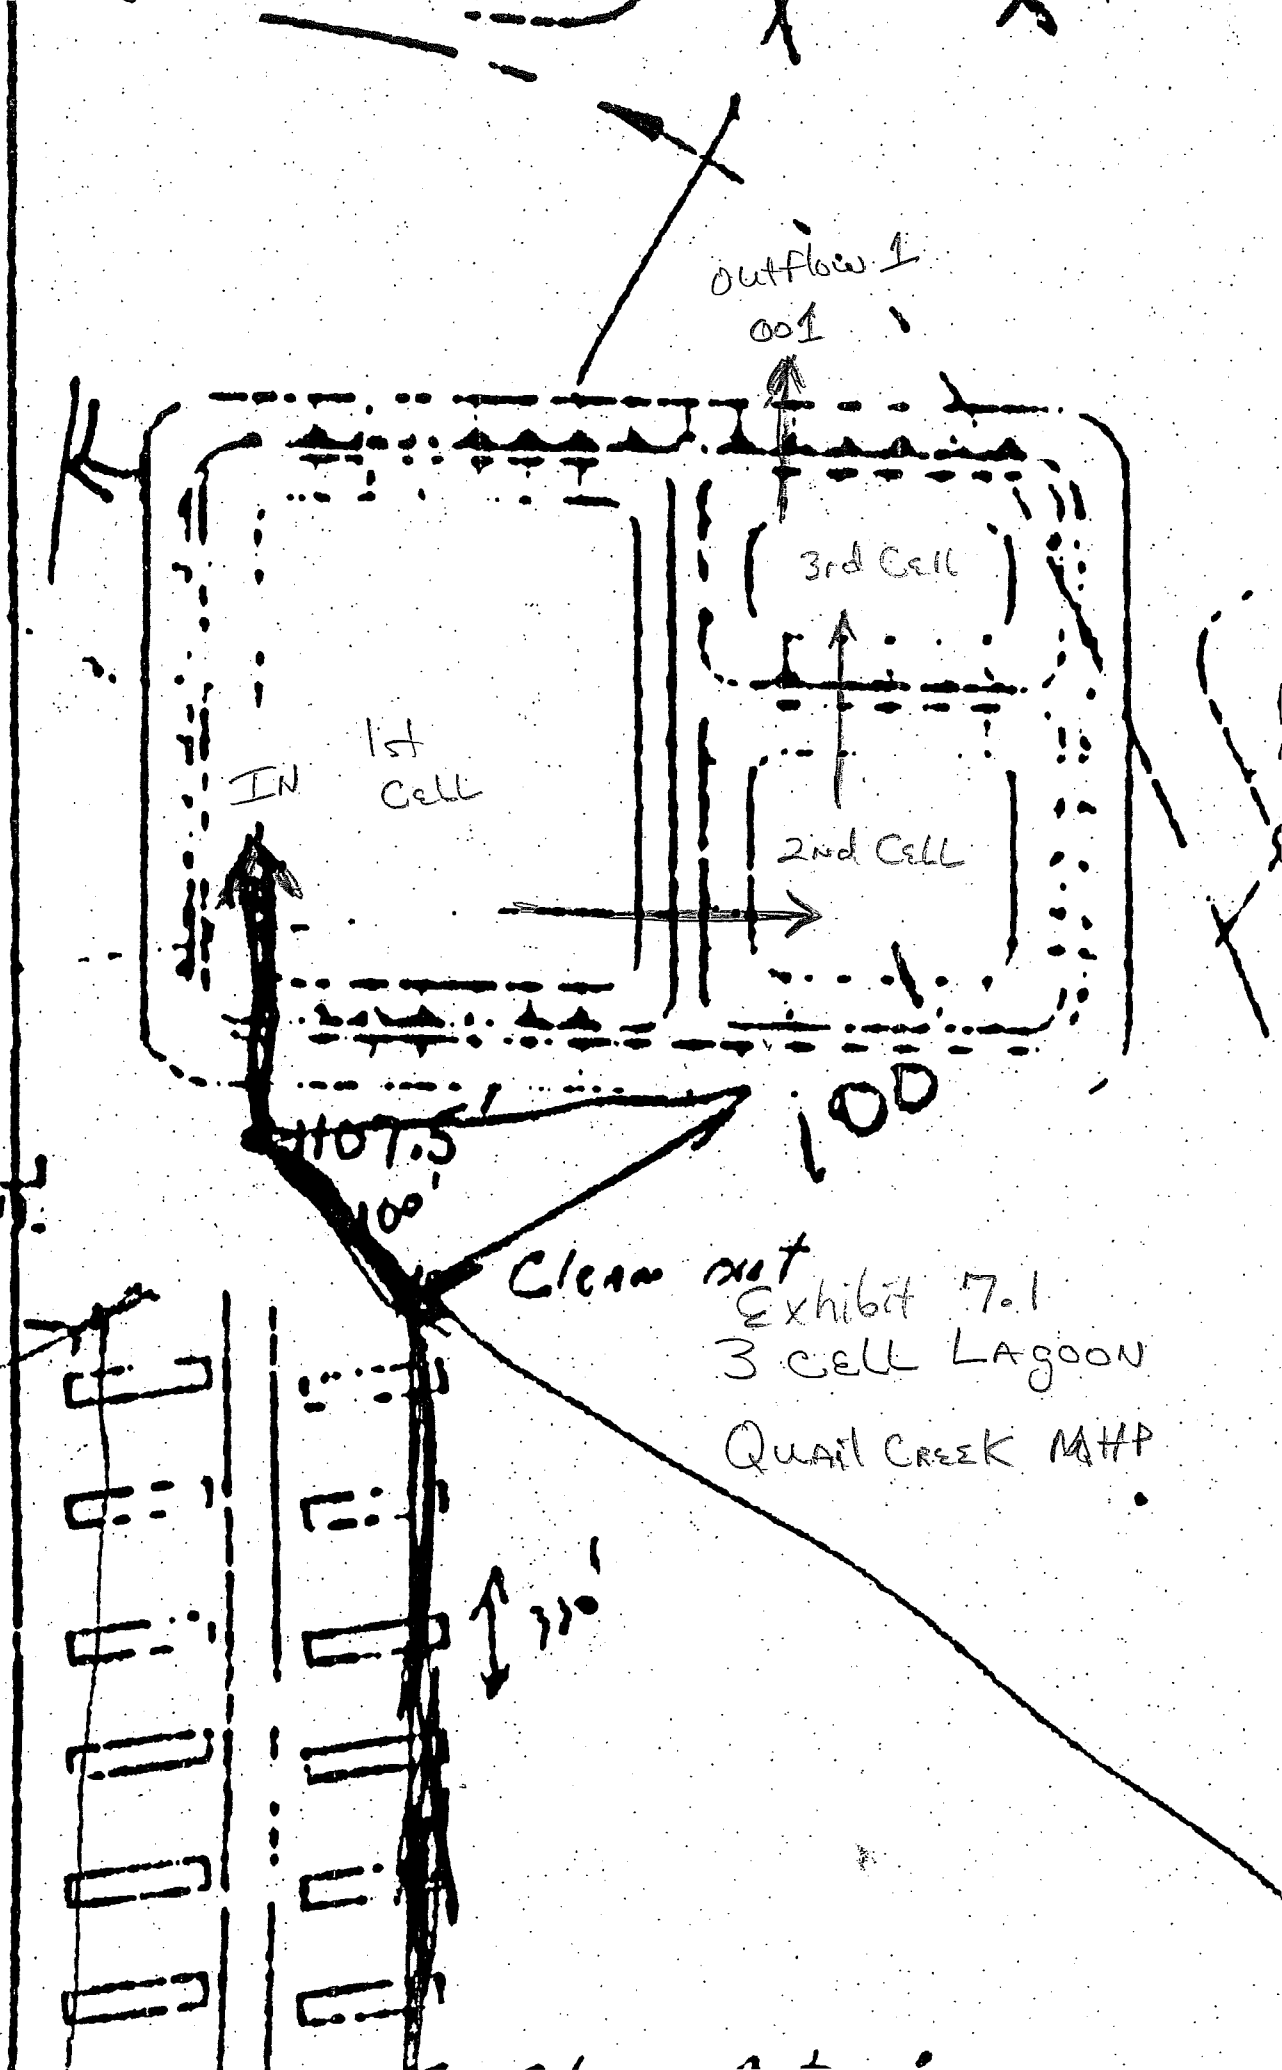 Outflow 1
001
3rd Cell
1st
IN CELL
2nd CELL
100'
Clean out
Exhibit 7.1
3 CELL LAGOON
QUAIL CREEK MHP